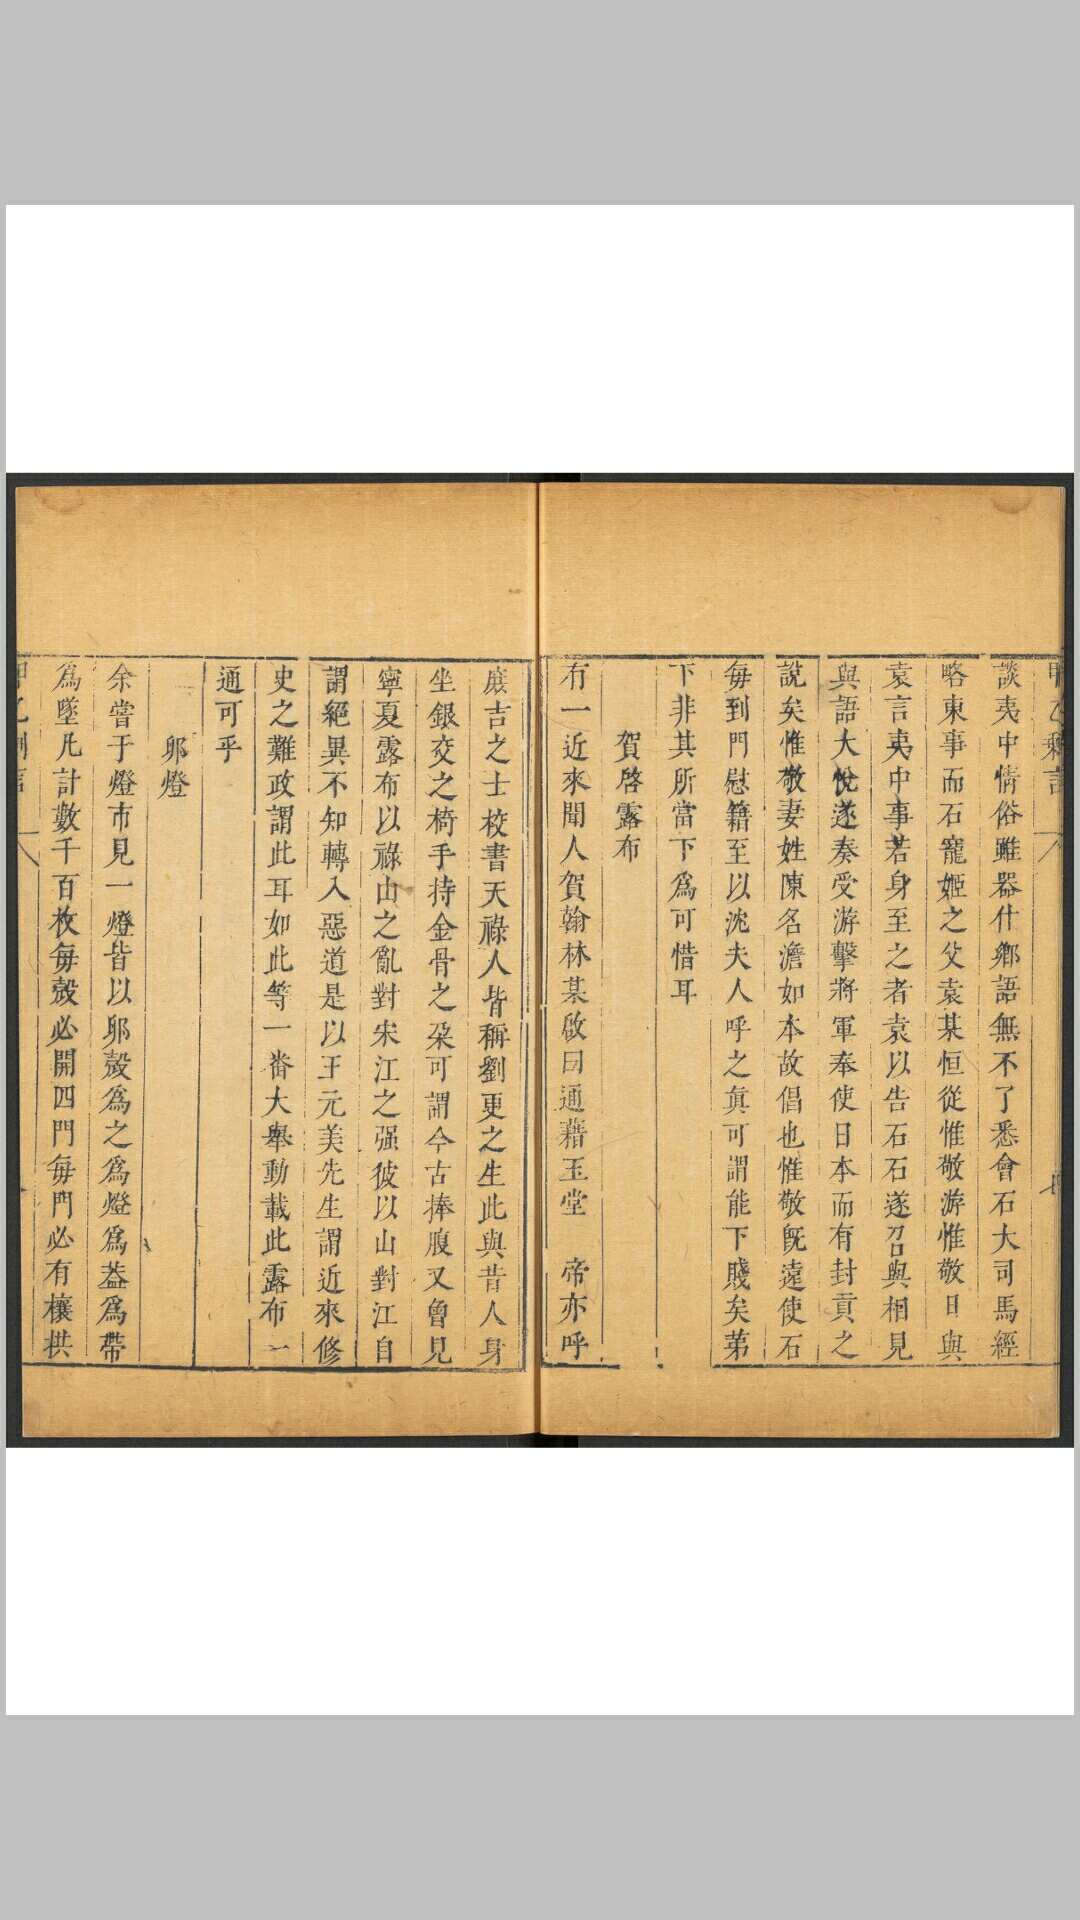 甲乙剩言
談夷中情俗雖器什鄉語無不了悉會石大司馬經
略東事而石寵姬之父袁某恒從惟敬游惟敬日與
袁言夷中事若身至之者袁以告石石遂召與相見
與語大悅遂奏受游擊將軍奉使日本而有封貢之
說矣惟敬妻姓陳名澹如本故倡也惟敬旣遠使石
每到門慰籍至以沈夫人呼之眞可謂能下賤矣第
下非其所當下爲可惜耳
賀啓露布
有一近來聞人賀翰林某啟曰通藉玉堂 帝亦呼
庶吉之士校書天祿人皆稱劉更之生此與昔人身
坐銀交之椅手持金骨之朶可謂今古捧腹又曾見
寧夏露布以祿山之亂對宋江之强彼以山對江自
謂絕異不知轉入惡道是以王元美先生謂近來修
史之難政謂此耳如此等一畨大舉動載此露布一
通可乎
卵燈
余嘗于燈市見一燈皆以卵殼爲之爲燈爲葢爲帶
爲墜凡計數千百枚每殼必開四門每門必有欀拱
甲乙剩言